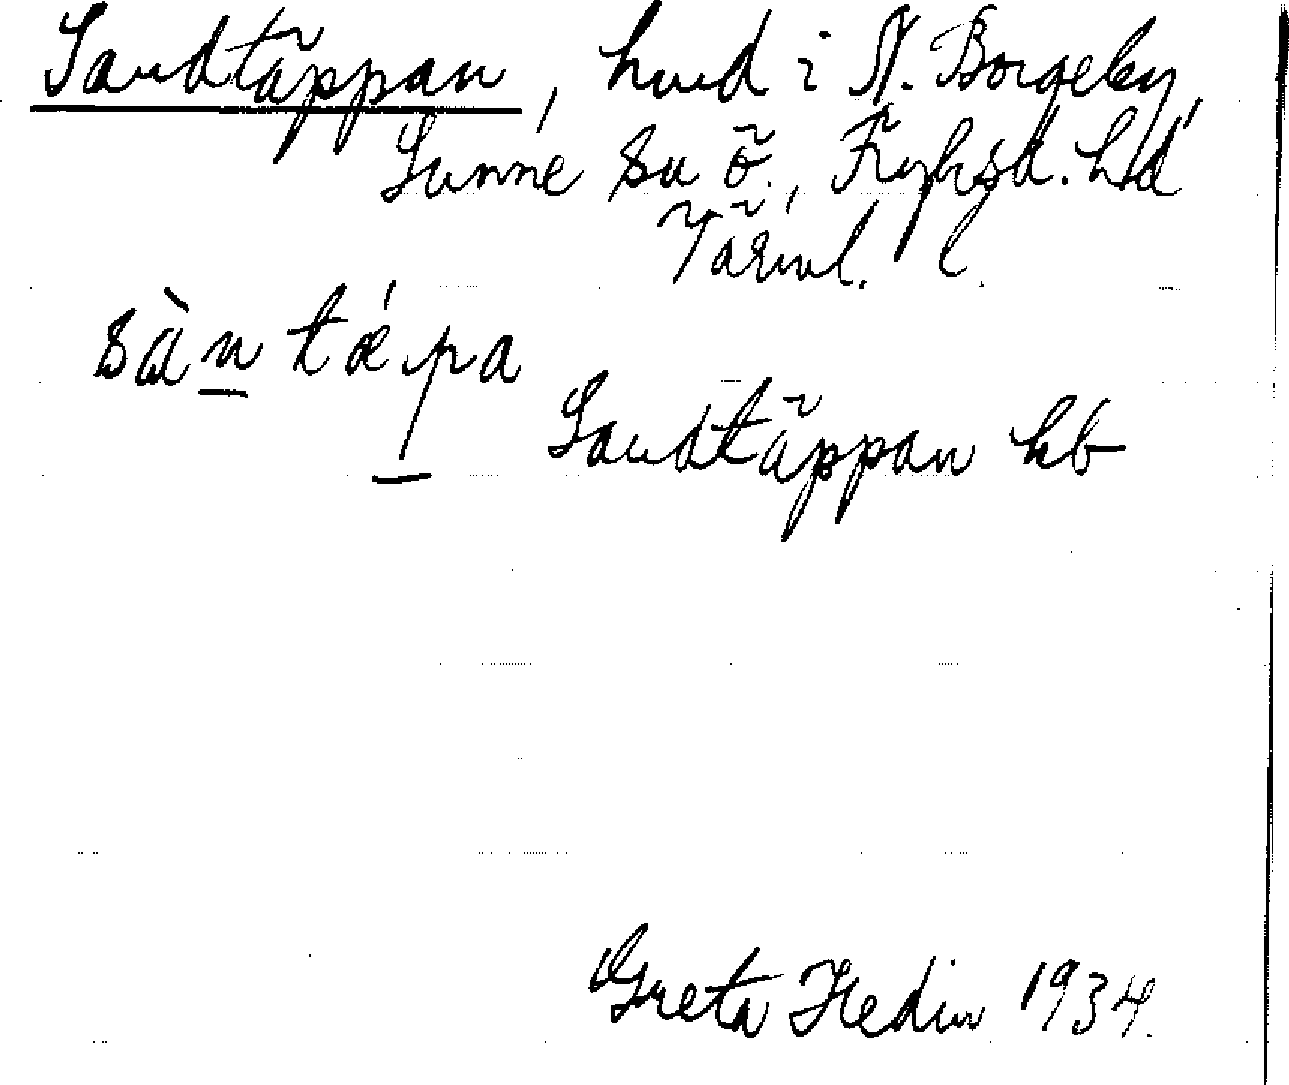 Sandtäppan, hmd i N. Borgeby,
Sunne sn ö., Fryksd. hd
Värml. l.
sàn tǽpa
Sandtäppan hb
Greta Hedin 1934.